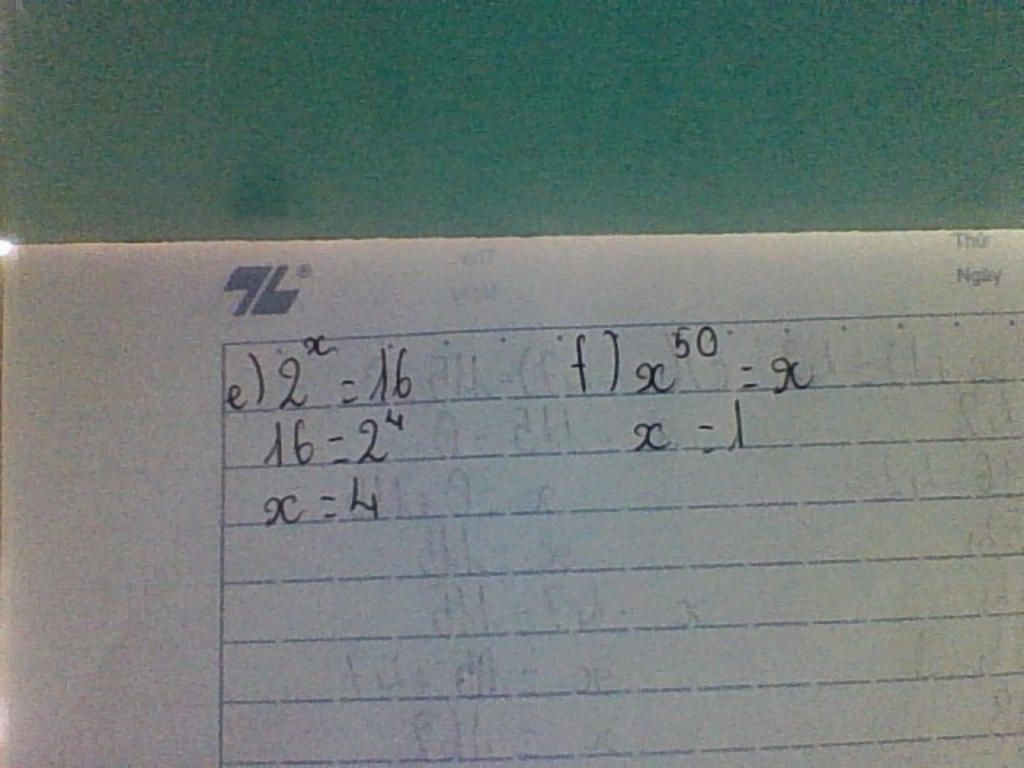 Thứ
Ngày
e) 2ˣ = 16
16 = 2⁴
x = 4
f) x⁵⁰ = x
x = 1